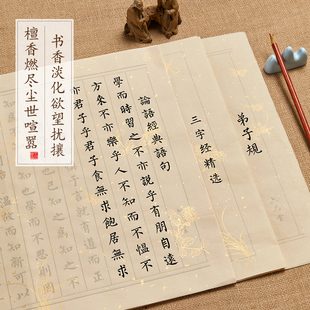 书香淡化欲望扰攘
檀香燃尽尘世喧嚣
弟子規
三字经精选
論語經典語句
學而時習之不亦說乎有朋自遠
方來不亦樂乎人不知而不慍不
亦君子乎君子食無求飽居無求
就有道而正
學而不思則罔